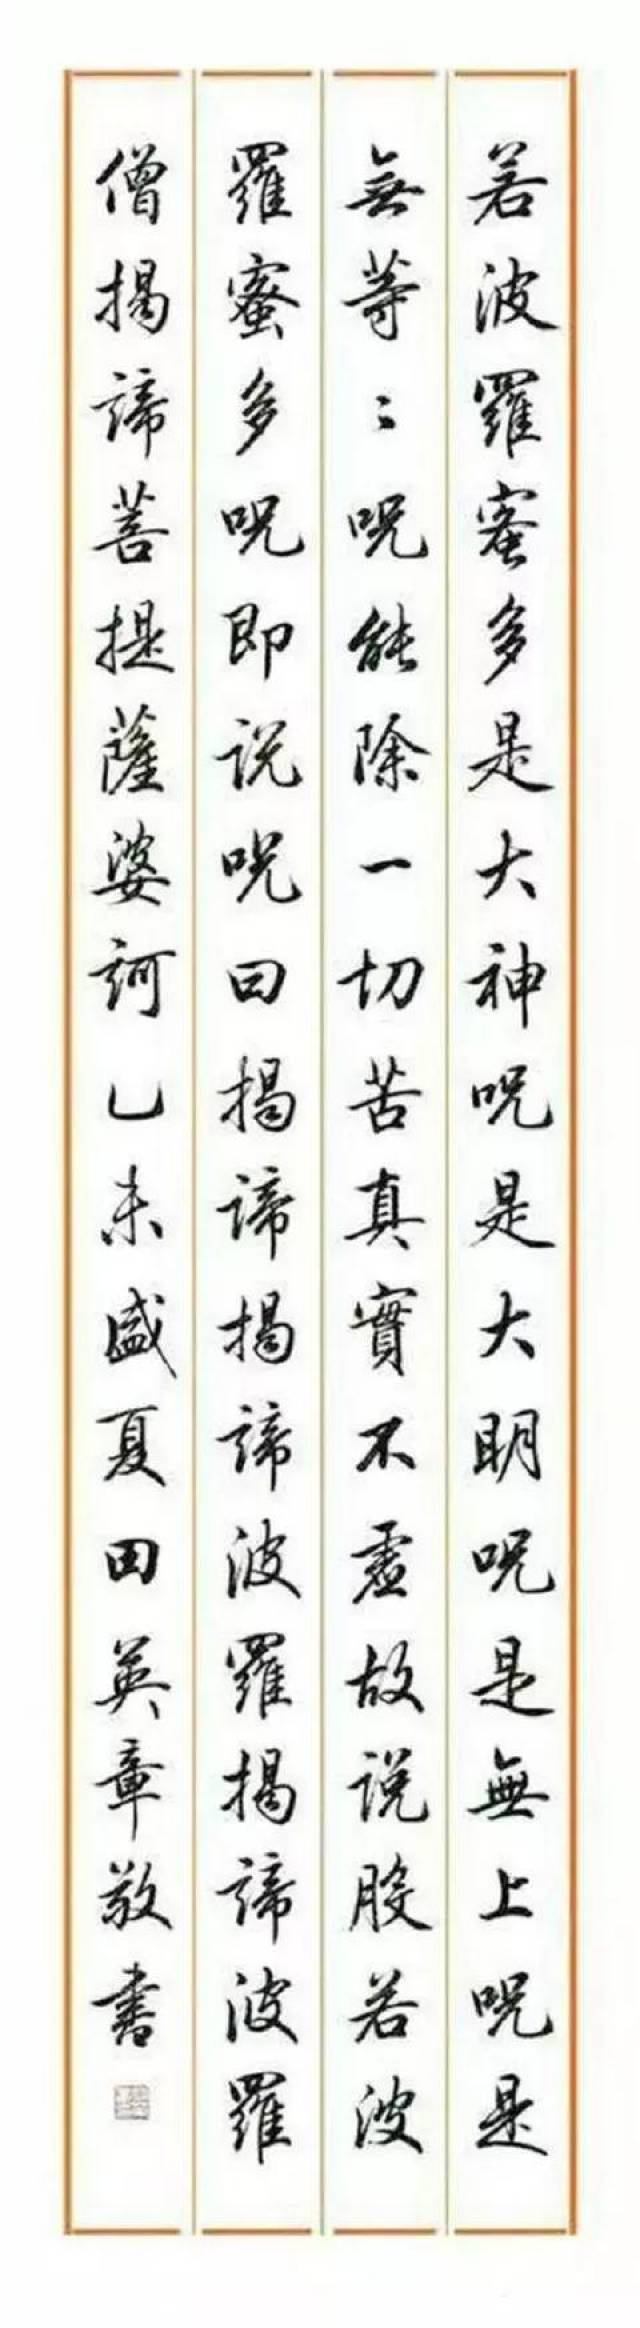 若波羅蜜多是大神呪是大明呪是無上呪是
無等〻呪能除一切苦真實不虛故说般若波
羅蜜多呪即说呪曰揭諦揭諦波羅揭諦波羅
僧揭諦菩提薩婆訶乙未盛夏田英章敬書